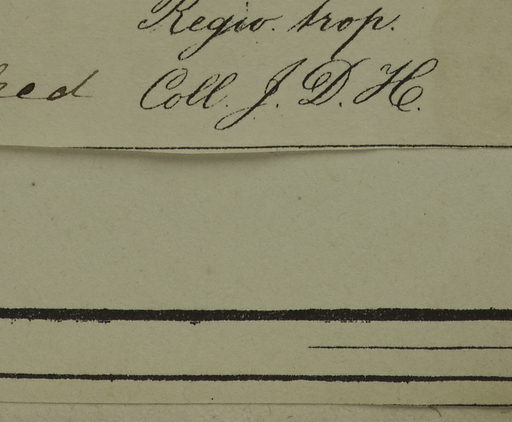 Regio. trop.
Coll. J. D. H.